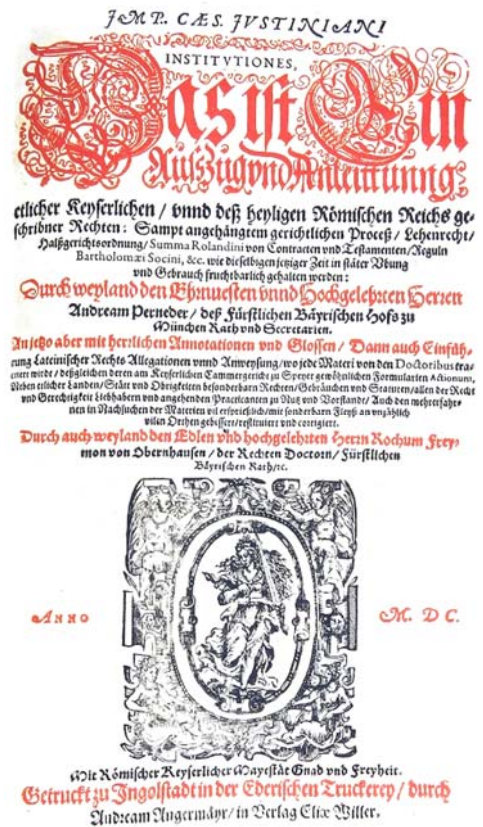 IMP. CÆS. IVSTINIANI
INSTITVTIONES,
Das ist Ein
Außzug vnd Anleittunng
etlicher Keyserlichen / vnnd deß heyligen Römischen Reichs ge-
schribner Rechten: Sampt angehängtem gerichtlichen Proceß / Lehenrecht /
Halßgerichtsordnung / Summa Rolandini von Contracten vnd Testamenten / Reguln
Bartholomæi Socini, &c. wie dieselbigen jetziger Zeit in stäter Vbung
vnd Gebrauch fruchtbarlich gehalten werden:
Durch weyland den Ehrnuesten vnnd Hochgelehrten Herren
Andream Perneder / deß Fürstlichen Bäyrischen Hofs zu
München Rath vnd Secretarien.
An jetzo aber mit herrlichen Annotationen vnd Glossen / Dann auch Einfüh-
rung Lateinischer Rechts Allegationen vnnd Anweysung / wo jede Materi von den Doctoribus tra-
ctiert wirdt / deßgleichen deren am Keyserlichen Cammergericht zu Speyer gewöhnlichen Formularien Actionum,
Neben etlicher Landen / Stätt vnd Obrigkeiten besondern Rechten / Gebräuchen vnd Statuten / allen der Recht
vnd Gerechtigkeit Liebhabern vnd angehenden Practicanten zu Nutz vnd Vorstande / Auch den mehrerfahr-
nen in Nachsuchen der Materien vil ersprießlich / mit sonderbarn Fleyß an vnzählich
vilen Orthen gebessert / restituiert vnd corrigiert.
Durch auch weyland den Edlen vnd hochgelehrten Herrn Rochum Frey-
mon von Obernhausen / der Rechten Doctorn / Fürstlichen
Bäyrischen Rath / ꝛc.
ANNO M. D C.
Mit Römischer Keyserlicher Mayestät Gnad vnd Freyheit.
Getruckt zu Ingolstadt in der Ederischen Truckerey / durch
Andream Angermäyr / in Verlag Eliæ Willer.